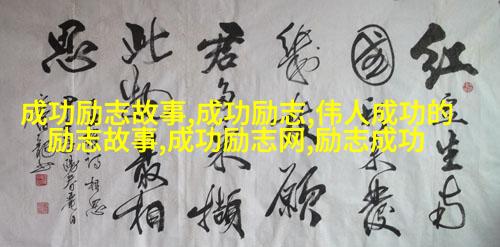 成功励志故事,成功励志,伟人成功的
励志故事,成功励志网,励志成功
红豆生南
國春来發
幾枝願
君多采撷
此物最相
思